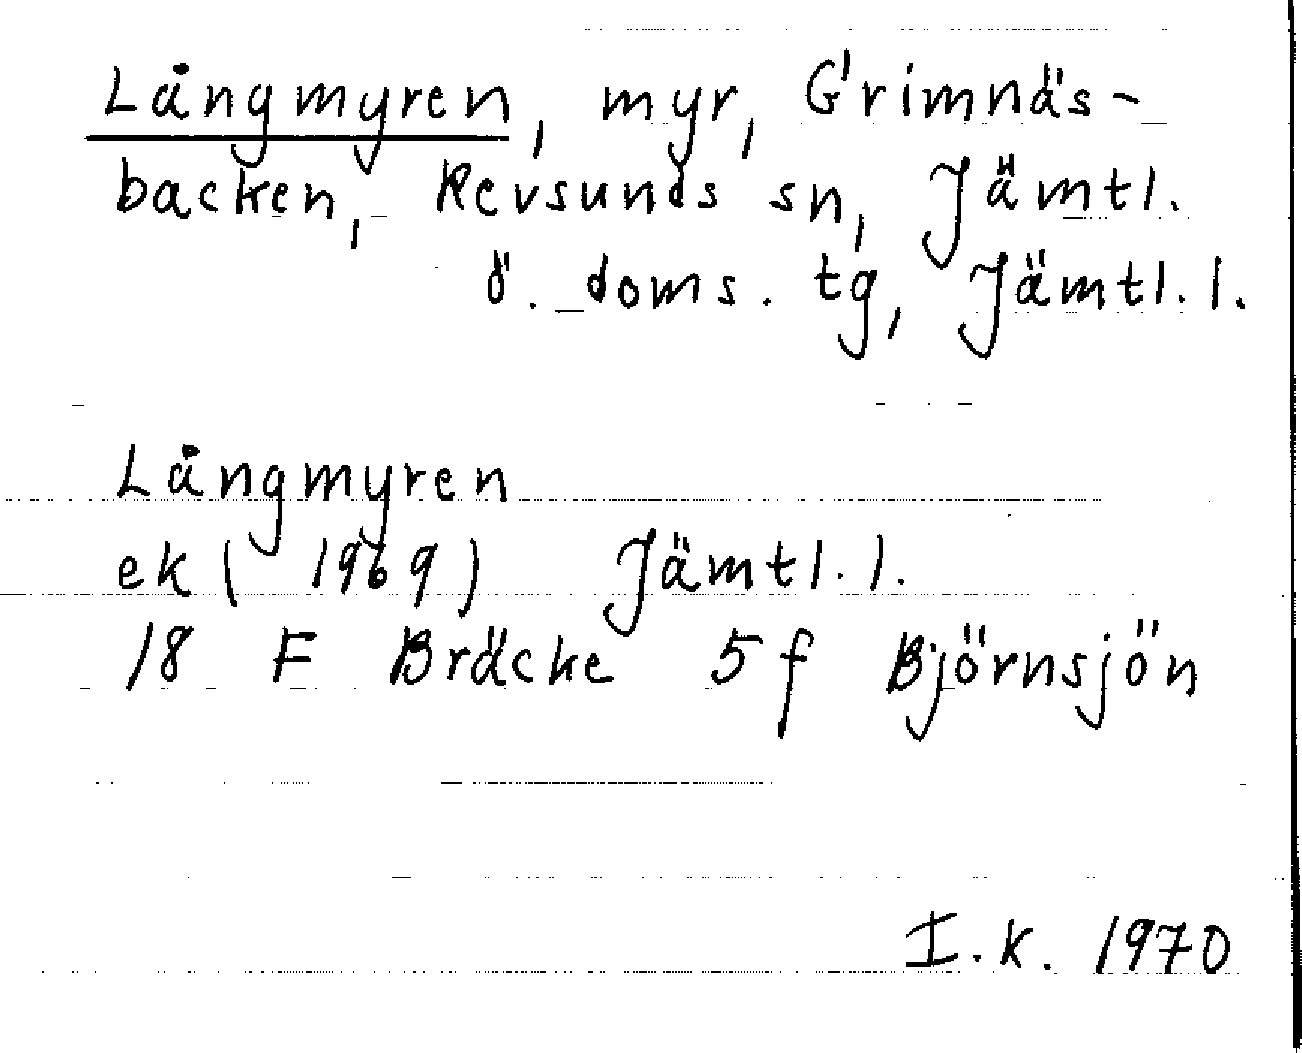 Långmyren, myr, Grimnäs-
backen, Revsunds sn, Jämtl.
ö. doms. tg, Jämtl. l.
Långmyren
ek ( 1969) Jämtl. l.
18 F Bräcke 5 f Björnsjön
I. K. 1970